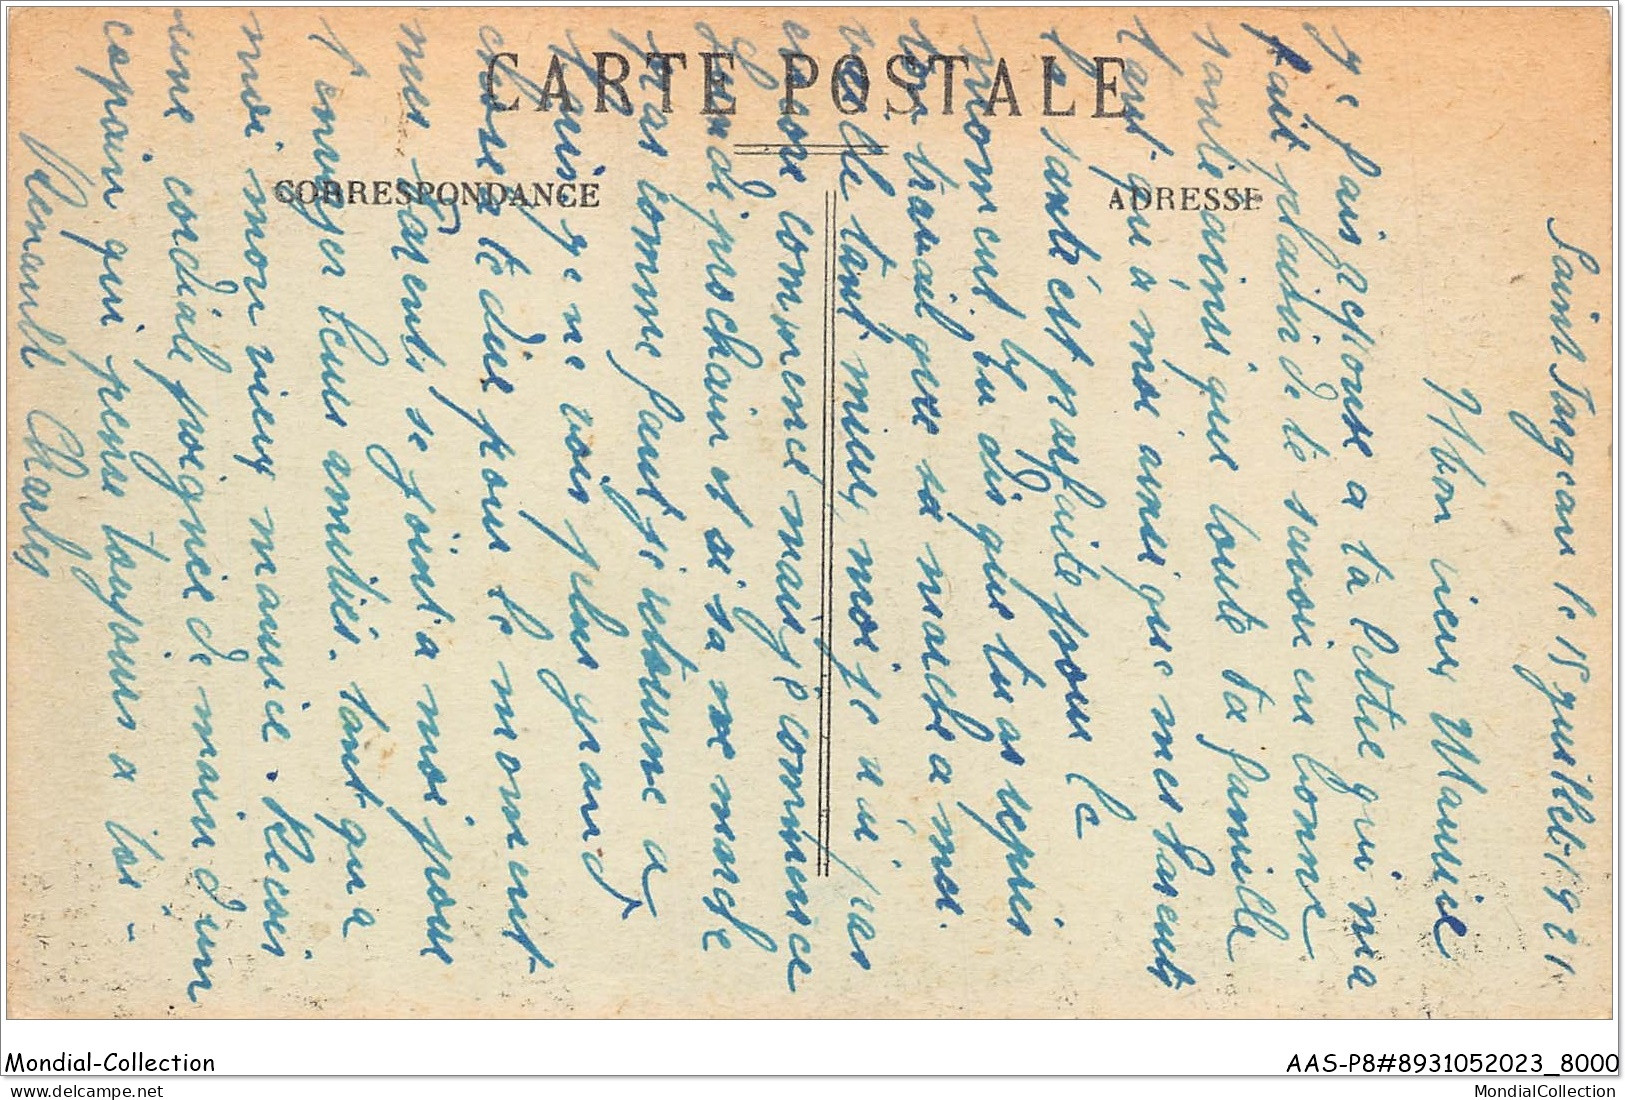 CARTE POSTALE
CORRESPONDANCE
ADRESSE
Saint Fargeau le 15 juillet 1921
Mon vieux Maurice
Je fais reponse a ta lettre qui m'a
fait plaisir de te savoir en bonne
santé ainsi que toute ta famille
tant qu'a moi ainsi que mes Parents
la santé est parfaite pour le
moment. tu dis que tu as repris
ton travail que sa marche a mer-
veille tant mieux, moi je n'ai pas
encore commencé mais je commence
Lundi prochain et si sa ne marche
pas comme faut je retourne a
Paris je ne vois plus grand
chose a te dire pour le moment
mes Parents se joint a moi pour
t'envoyer leurs amitiés. tant qu'a
moi mon vieux maurice. Recois
une cordiale poignée de main d'un
copain qui pense toujours a toi -
Renault Charles
Mondial-Collection
AAS-P8#8931052023_8000
www.delcampe.net
MondialCollection